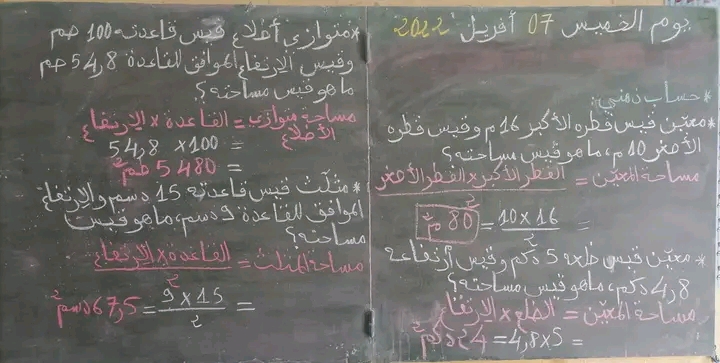 يوم الخميس 07 أفريل 2022
* حساب ذهني:
* معيّن قيس قطره الأكبر 16 م وقيس قطره
الأصغر 10 م، ما هو قيس مساحته؟
مساحة المعيّن = القطر الأكبر × القطر الأصغر
2
= 10 × 16 = 80 م²
2
* معيّن قيس ضلعه 5 دكم وقيس ارتفاعه
4,8 دكم، ما هو قيس مساحته؟
مساحة المعيّن = الضلع × الارتفاع
= 4,8 × 5 = 24 دكم²
* متوازي أضلاع قيس قاعدته 100 صم
وقيس الارتفاع الموافق للقاعدة 54,8 صم
ما هو قيس مساحته؟
مساحة متوازي = القاعدة × الارتفاع
الأضلاع
= 54,8 × 100
= 5480 صم²
* مثلّث قيس قاعدته 15 دسم والارتفاع
الموافق للقاعدة 9 دسم، ما هو قيس
مساحته؟
مساحة المثلث = القاعدة × الارتفاع
2
= 9 × 15 = 67,5 دسم²
2